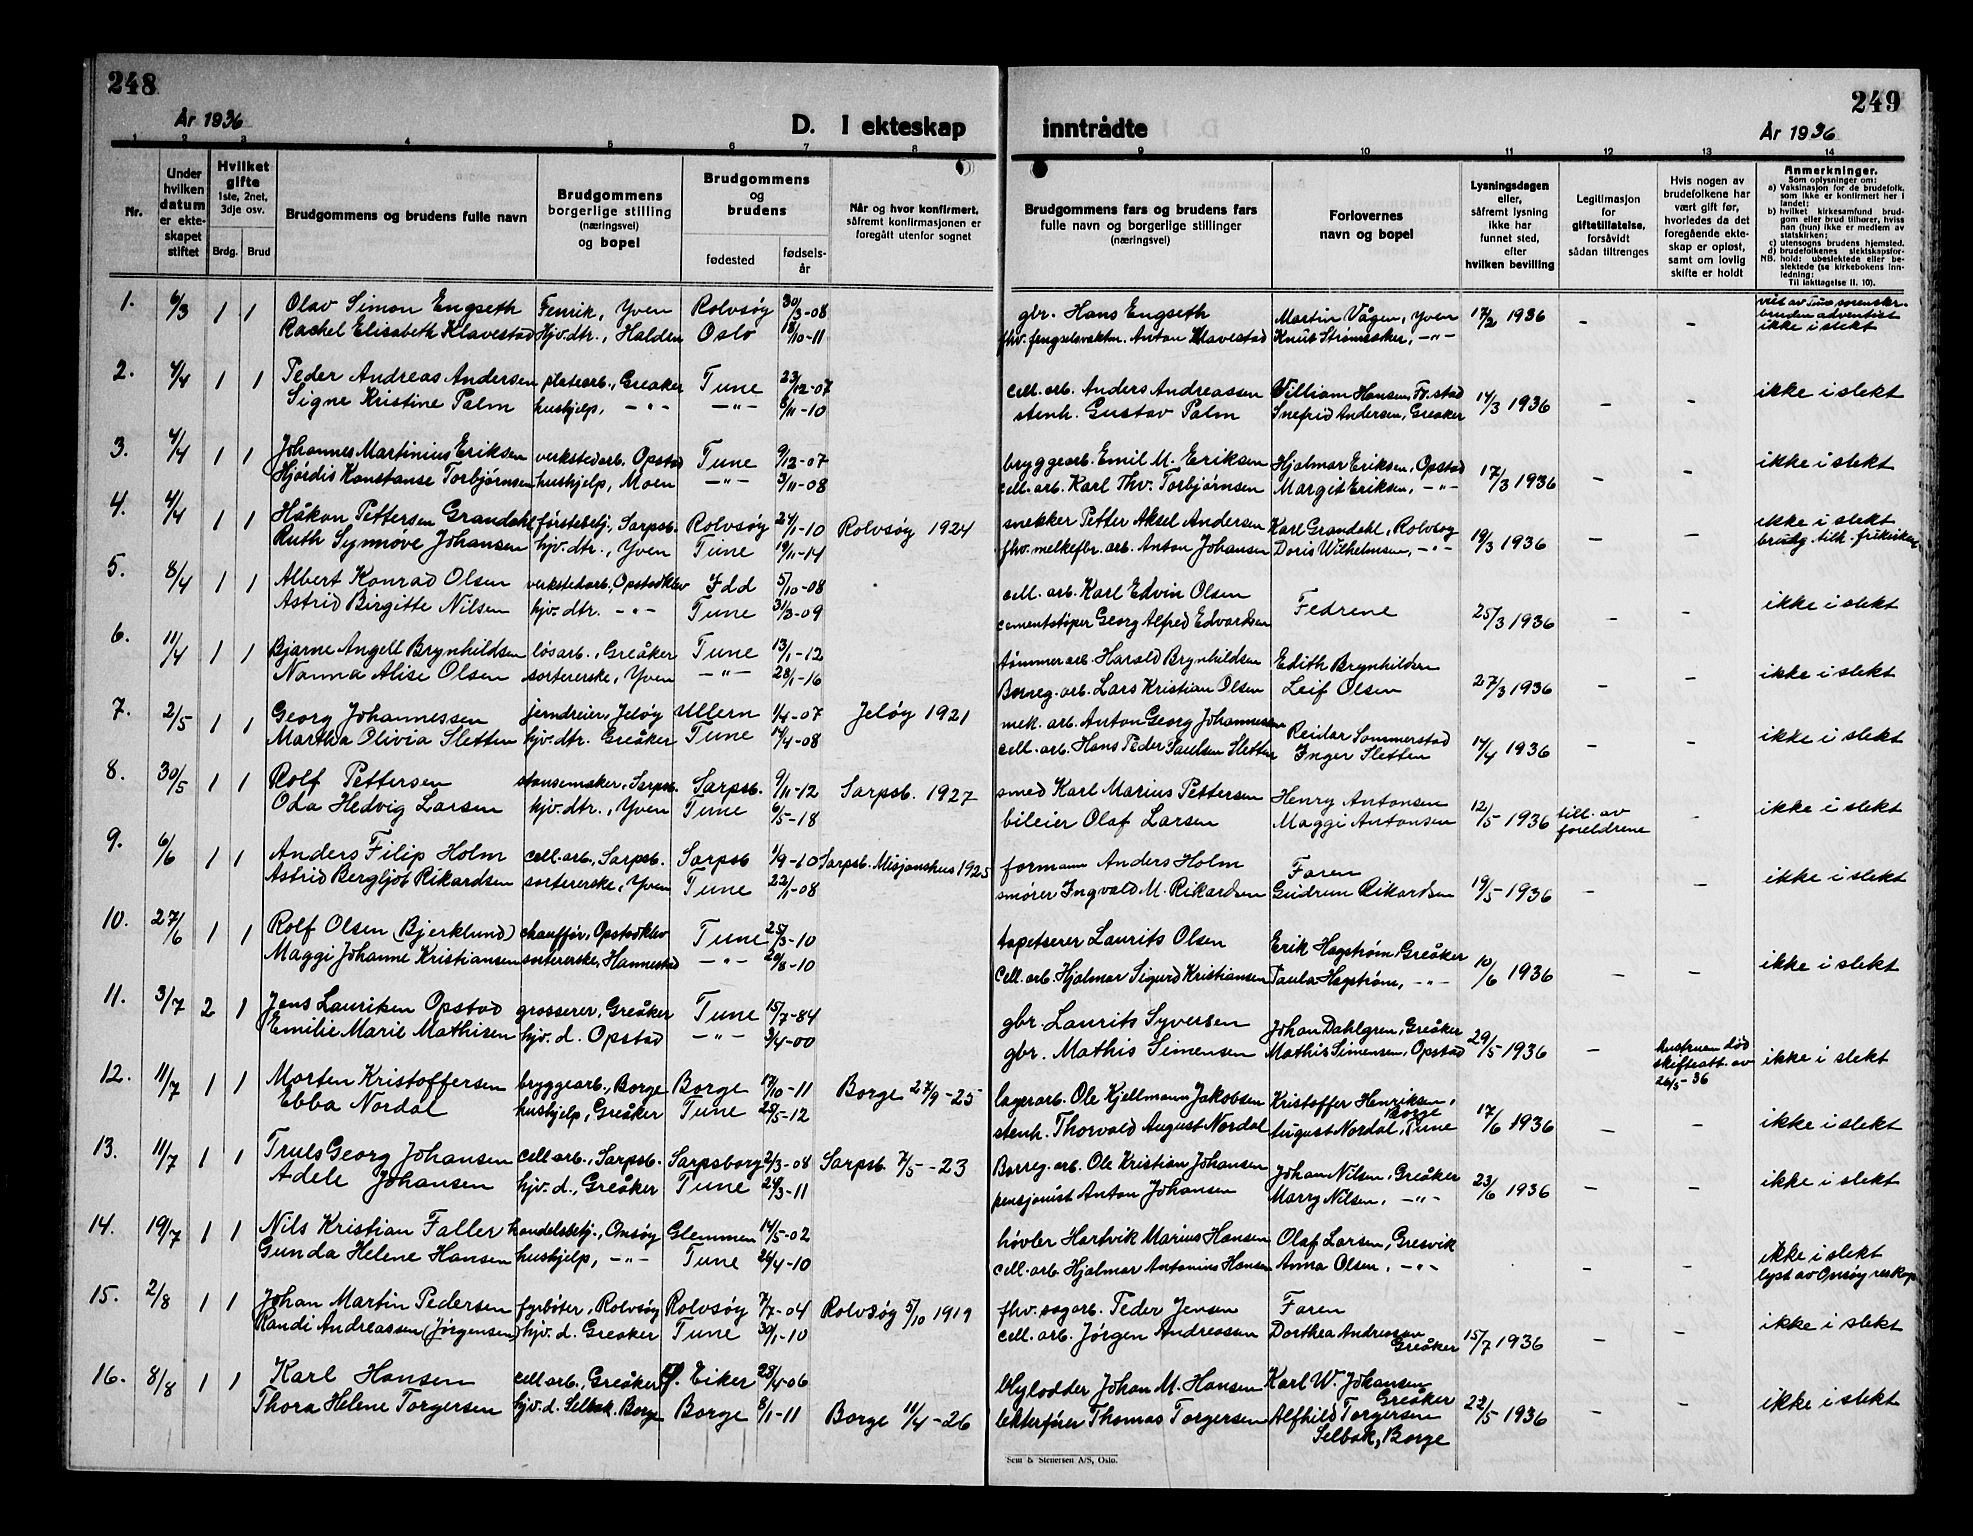 248
År 1936
D. I ekteskap
1 2 3 4 5 6 7 8
Nr.
Under hvilken datum er ekteskapet stiftet
Hvilket gifte
1ste, 2net, 3dje osv.
Brdg. Brud
Brudgommens og brudens fulle navn
Brudgommens borgerlige stilling (næringsvei) og bopel
Brudgommens og brudens
fødested
fødselsår
Når og hvor konfirmert, såfremt konfirmasjonen er foregått utenfor sognet
1. 6/3 1 1 Olav Simon Engseth Fenrik, Yven Rolvsøy 30/3-08
Rachel Elisabeth Klavestad Hjv. dtr., Halden Oslo 18/10-11
2. 4/4 1 1 Peder Andreas Andersen platearb., Greaker Tune 23/12-07
Signe Kristine Palm hushjelp, -"- -"- 8/11-10
3. 4/4 1 1 Johannes Martinius Eriksen verkstedarb. Opstad Tune 9/12-07
Hjørdis Konstanse Torbjørnsen hushjelp, Moen -"- 3/11-08
4. 4/4 1 1 Håkon Pettersen Grandahl førstebetj., Sarpsb. Rolvsøy 24/1-10 Rolvsøy 1924
Ruth Synnøve Johansen hjv. dtr., Yven Tune 19/11-14
5. 8/4 1 1 Albert Konrad Olsen verkstedarb., Opstadklev Idd 5/10-08
Astrid Birgitte Nilsen hjv. dtr. -"- Tune 31/3-09
6. 11/4 1 1 Bjarne Angell Brynhildsen løsarb., Greåker Tune 13/1-12
Nanna Alise Olsen sortererske, Yven -"- 28/1-16
7. 2/5 1 1 Georg Johannessen jerndreier, Jeløy Ullern 1/4-07 Jeløy 1921
Martha Olivia Sletten hjv. dtr. Greåker Tune 14/4-08
8. 30/5 1 1 Rolf Pettersen stansemaker, Sarpsb. Sarpsb. 9/11-12 Sarpsb. 1927
Oda Hedvig Larsen hjv. dtr., Yven Tune 6/5-18
9. 6/6 1 1 Anders Filip Holm cell. arb., Sarpsb. Sarpsb 1/9-10 Sarpsb. Misjonshus 1925
Astrid Bergljot Rikardsen sortererske, Yven Tune 22/1-08
10. 27/6 1 1 Rolf Olsen (Bjerklund) chauffør, Opstadklev Tune 25/3-10
Maggi Johanne Kristiansen sortererske, Hannestad -"- 20/8-10
11. 3/7 2 1 Jens Lauriken Opstad grosserer, Greåker Tune 15/7-84
Emilie Marie Mathisen hjv. d. Opstad -"- 9/4-00
12. 11/7 1 1 Morten Kristoffersen bryggearb., Borge Borge 17/10-11 Borge 27/9-25
Ebba Nordal hushjelp, Greåker Tune 28/5-12
13. 11/7 1 1 Truls Georg Johansen cell arb., Sarpsb. Sarpsborg 2/3-08 Sarpsb. 7/5-23
Adele Johansen hjv. d., Greåker Tune 24/3-11
14. 19/7 1 1 Nils Kristian Faller handelsbetj., Onsøy Glemmen 14/5-02
Gunda Helene Hansen hushjelp, -"- Tune 24/4-10
15. 2/8 1 1 Johan Martin Pedersen fyrbøter, Rolvsøy Rolvsøy 7/7-04 Rolvsøy 5/10 1919
Randi Andreassen (Jørgensen) hjv. d. Greaker Tune 30/1-10
16. 8/8 1 1 Karl Hansen cell arb., Greåker Eiker 28/4-06
Thora Helene Torgersen hjv. d. Selbak, Borge Borge 8/1-11 Borge 11/4-26
249
inntrådte
År 1936
9 10 11 12 13 14
Brudgommens fars og brudens fars fulle navn og borgerlige stillinger (næringsvei)
Forlovernes navn og bopel
Lysningsdagen eller, såfremt lysning ikke har funnet sted, efter hvilken bevilling
Legitimasjon for giftetillatelse, forsåvidt sådan tiltrenges
Hvis nogen av brudefolkene har vært gift før, hvorledes da det foregående ekteskap er opløst, samt om lovlig skifte er holdt
Anmerkninger.
Som oplysninger om:
a) Vaksinasjon for de brudefolk, som ikke er konfirmert her i landet;
b) hvilket kirkesamfund brudgom eller brud tilhører, hviss han (hun) ikke er medlem av statskirken;
c) utensogns brudens hjemsted.
d) brudefolkenes slektskapsforhold: ubeslektede eller beslektede (se kirkebokens innledning;
NB. Til iakttagelse II. 10).
gbr. Hans Engseth Martin Vågen, Yven 17/2 1936 - - viet av Tune sorenskr.
bruden adventist
fhv. fengselsvaktm. Anton Klavestad Knut Strømsæter, -"- ikke i slekt
cell. arb. Anders Andreassen William Hansen, Fr.stad 14/3 1936 - - ikke i slekt
stenh. Gustav Palm Snefrid Andersen, Greåker
bryggearb. Emil M. Eriksen Hjalmar Eriksen, Opstad 17/3 1936 - - ikke i slekt
cell. arb. Karl Thv. Torbjørnsen Margit Eriksen, -"-
snekker Petter Aksel Andersen Karl Grandahl, Rolvsøy 19/3 1936 - - ikke i slekt
fhv. melkefbr. arb. Anton Johansen Doris Wilhelmsen, -"- brudg. tilh. frikirken
cell. arb. Karl Edvin Olsen Fedrene 25/3 1936 - - ikke i slekt
cementstøper Georg Alfred Edvardsen
tømmerarb. Harald Brynhildsen Edith Brynhildsen 27/3 1936 - - ikke i slekt
Borreg. arb. Lars Kristian Olsen Leif Olsen
mek. arb. Anton Georg Johannessen Reidar Sommerstad 14/4 1936 - - ikke i slekt
cell. arb. Hans Peder Paulsen Sletten Inger Sletten
smed Karl Marius Pettersen Henry Antonsen 12/5 1936 till. av foreldrene - ikke i slekt
bileier Olaf Larsen Maggi Antonsen
formann Anders Holm Faren 19/5 1936 - - ikke i slekt
smører Ingvald M. Rikardsen Gudrun Rikardsen
tapetserer Laurits Olsen Erik Hagstrøm, Greåker 10/6 1936 - - ikke i slekt
Cell. arb. Hjalmar Sigurd Kristiansen Paula Hagstrøm, -"-
gbr. Laurits Syversen Johan Dahlgren, Greåker 29/5 1936 - hustruen død skifteatt. av 26/5-36 ikke i slekt
gbr. Mathis Simensen Mathis Simensen, Opstad
lagerarb. Ole Kjellmann Jakobsen Kristoffer Henriksen, Borge 17/6 1936 - - ikke i slekt
stenh. Thorvald August Nordal August Nordal, Tune
Borreg. arb. Ole Kristian Johansen Johan Nilsen, Greåker 23/6 1936 - - ikke i slekt
pensjonist Anton Johansen Marry Nilsen, -"-
høvler Hartvik Marius Hansen Olaf Larsen, Gresvik - - ikke i slekt
cell. arb. Hjalmar Antonius Hansen Anna Olsen, -"- lyst av Onsøy res.kap.
fhv. sagarb. Peder Jensen Faren 15/7 1936 - - ikke i slekt
cell. arb. Jørgen Andreassen Dorthea Andreassen Greåker
blylodder Johan M. Hansen Karl W. Johansen Greåker 22/5 1936 - - ikke i slekt
lekterfører Thomas Torgersen Alfhild Torgersen
Selbak, Borge
Sem & Stenersen A/S, Oslo.